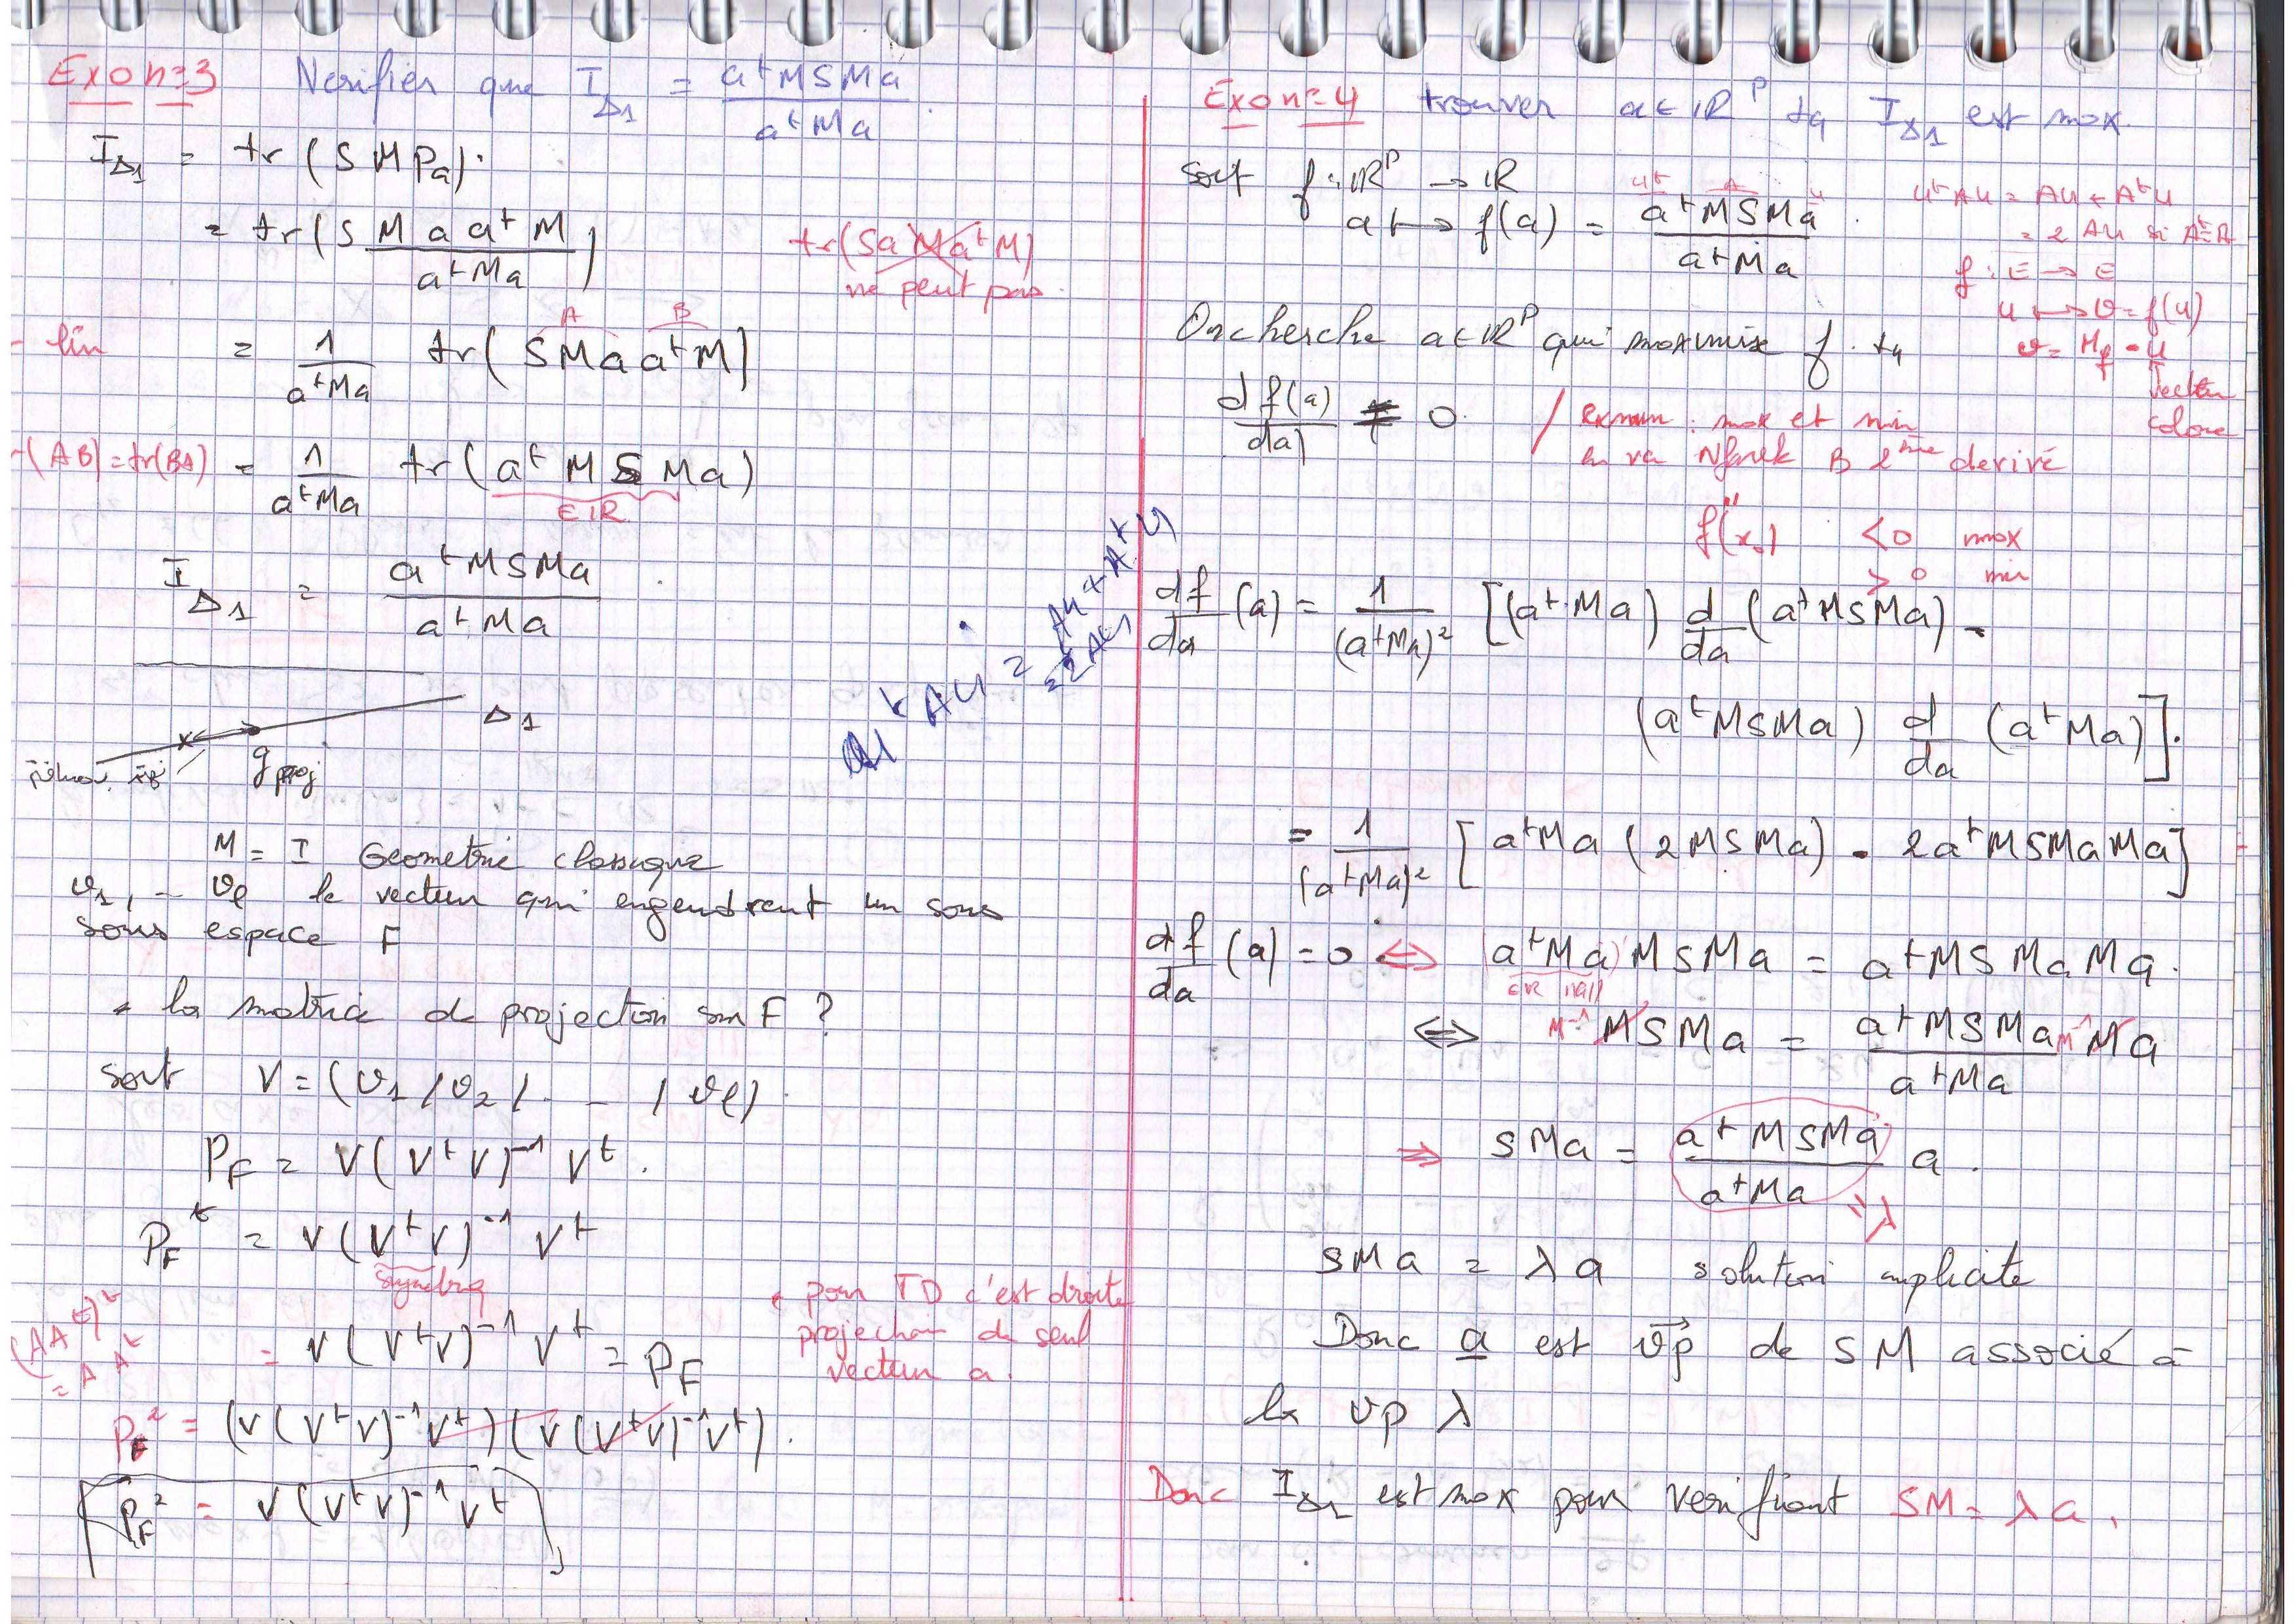 Exo n=3 Verifier que I_Δ1 = a^t M S M a / a^t M a
I_Δ1 = tr(S M P_a).
= tr(S M a a^t M / a^t M a)
tr(S a M a^t M)
ne peut pas.
lin = 1 / a^t M a tr(S M a a^t M)
A B
(AB) = tr(BA) = 1 / a^t M a tr(a^t M S M a)
∈ IR
I_Δ1 = a^t M S M a / a^t M a .
Δ1
g proj
u^t A u = Au + A^t u
= 2 Au
M = I Geometrie classique
v1, - vl le vecteur qui engendrent un sous
sous espace F
la matrice de projection sur F ?
soit V = (v1 / v2 / . - / vl).
P_F = V (V^t V)^-1 V^t .
P_F^t = V (V^t V)^-1 V^t
symetriq
(A A^t)^t
= A A^t
= V (V^t V)^-1 V^t = P_F
pour TD c'est droite
projection de seul
vecteur a.
P_F^2 = (V (V^t V)^-1 V^t) (V (V^t V)^-1 V^t).
P_F^2 = V (V^t V)^-1 V^t
Exo n=4 trouver a ∈ IR^P tq I_Δ1 est max.
soit f : IR^P → IR
u^t A u
a ↦ f(a) = a^t M S M a / a^t M a .
u^t A u = Au + A^t u
= 2 Au si A^t = A
f : E → E
u ↦ v = f(u)
v = M_f · u
vecteur
colone
On cherche a ∈ IR^P qui maximise f . tq
d f(a) / da = 0
/ : max et min
en va 2ème derivé
f''(x0) < 0 max
> 0 min
df/da (a) = 1 / (a^t M a)^2 [(a^t M a) d/da (a^t M S M a) -
(a^t M S M a) d/da (a^t M a)].
= 1 / (a^t M a)^2 [a^t M a (2 M S M a) - 2 a^t M S M a M a]
df/da (a) = 0 ⇔ (a^t M a) M S M a = a^t M S M a M a.
∈ IR ||a||
⇔ M^-1 M S M a = a^t M S M a / a^t M a M^-1 M a
⇒ S M a = a^t M S M a / a^t M a a .
= λ
S M a = λ a solution implicite
Donc a est vp de S M associé à
la vp λ
Donc I_Δ1 est max pour verifiant SM = λ a .